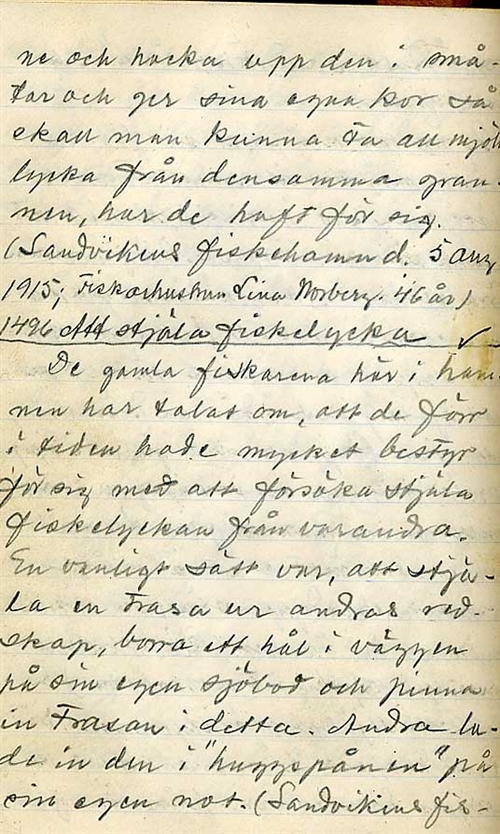 ne och hacka upp den i små-
tar och ger sina egna kor så
skall man kunna ta all mjölk
lycka från densamma gran-
nen, har de haft för sig.
(Sandvikens fiskehamn d. 5 aug
1915; Fiskarhustrun Lina Norberg. 46 år)
1496 Att stjäla fiskelycka ✓
De gamla fiskarena här i ham-
nen har talat om, att de förr
i tiden hade mycket bestyr
för sig med att försöka stjäla
fiskelyckan från varandra.
En vanligt sätt var, att stjä-
la en trasa ur andras red-
skap, borra ett hål i väggen
på sin egen sjöbod och pinna
in trasan i detta. Andra la-
de in den i "huggspånin" på
sin egen not. (Sandvikens fis-